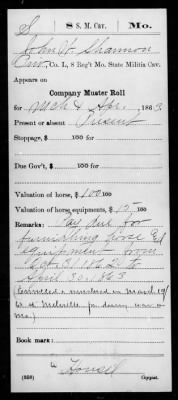 S 8 S. M. Cav. Mo.
John H. Shannon
Pvt., Co. L, 8 Reg't Mo. State Militia Cav.
Appears on
Company Muster Roll
for Mch & Apr., 1863.
Present or absent Present
Stoppage, $ 100 for
Due Gov't, $ 100 for
Valuation of horse, $ 100 100
Valuation of horse equipments, $ 15 100
Remarks: Pay due for
furnishing horse &
equipment from
Oct. 31, 1862 to
April 30, 1863
(Enrolled & mustered in March 19/
62 at Melville for during war
Mo.)
Book mark:
Housel
(858) Copyist.